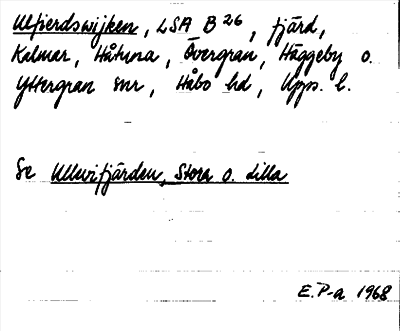 Ulfierdswijken, LSA B 26, fjärd,
Kalmar, Håtuna, Övergran, Häggeby o.
Yttergran snr, Håbo hd, Upps. l.
Se Ullevifjärden, Stora o. Lilla
E.P-a 1968